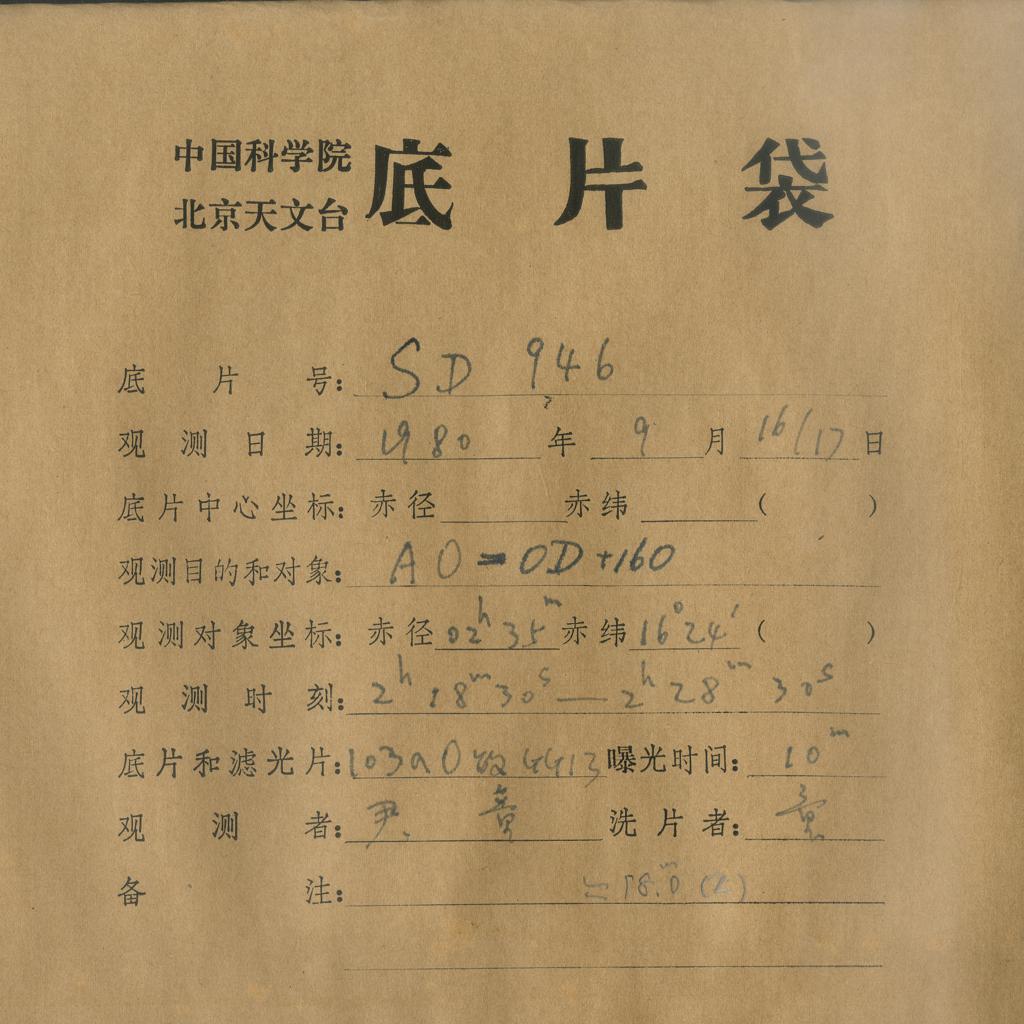 中国科学院
北京天文台
底片袋
底片号: SD 946
观测日期: 1980 年 9 月 16/17 日
底片中心坐标: 赤径 赤纬 ( )
观测目的和对象: AO=OD+160
观测对象坐标: 赤径 02ʰ35ᵐ 赤纬 16°24′ ( )
观测时刻: 2ʰ18ᵐ30ˢ — 2ʰ28ᵐ30ˢ
底片和滤光片: 103aO 4413 曝光时间: 10ᵐ
观测者: 尹 洗片者:
备注: 18.ᵐ0